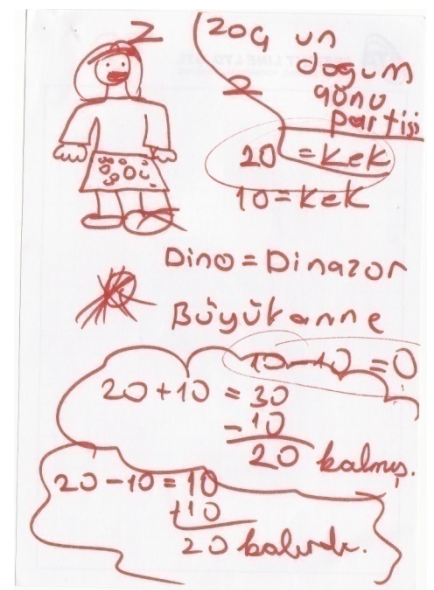 Z
zog un
dogum
gönü
partisi
20 = Kek
10 = Kek
Dino = Dinazor
Büyükanne
10-10 = 0
20 + 10 = 30
- 10
20 kalmış.
20 - 10 = 10
+10
20 kalırdı.